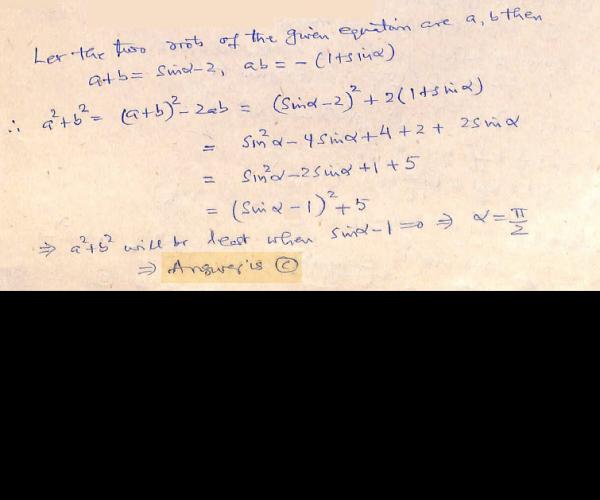 Let the two roots of the given equation are a, b then
a+b = sinα-2, ab = - (1+sinα)
∴ a²+b² = (a+b)² - 2ab = (sinα-2)² + 2(1+sinα)
= sin²α - 4sinα + 4 + 2 + 2sinα
= sin²α - 2sinα + 1 + 5
= (sinα - 1)² + 5
⇒ a²+b² will be least when sinα-1 = 0 ⇒ α = π/2
⇒ Answer is ©